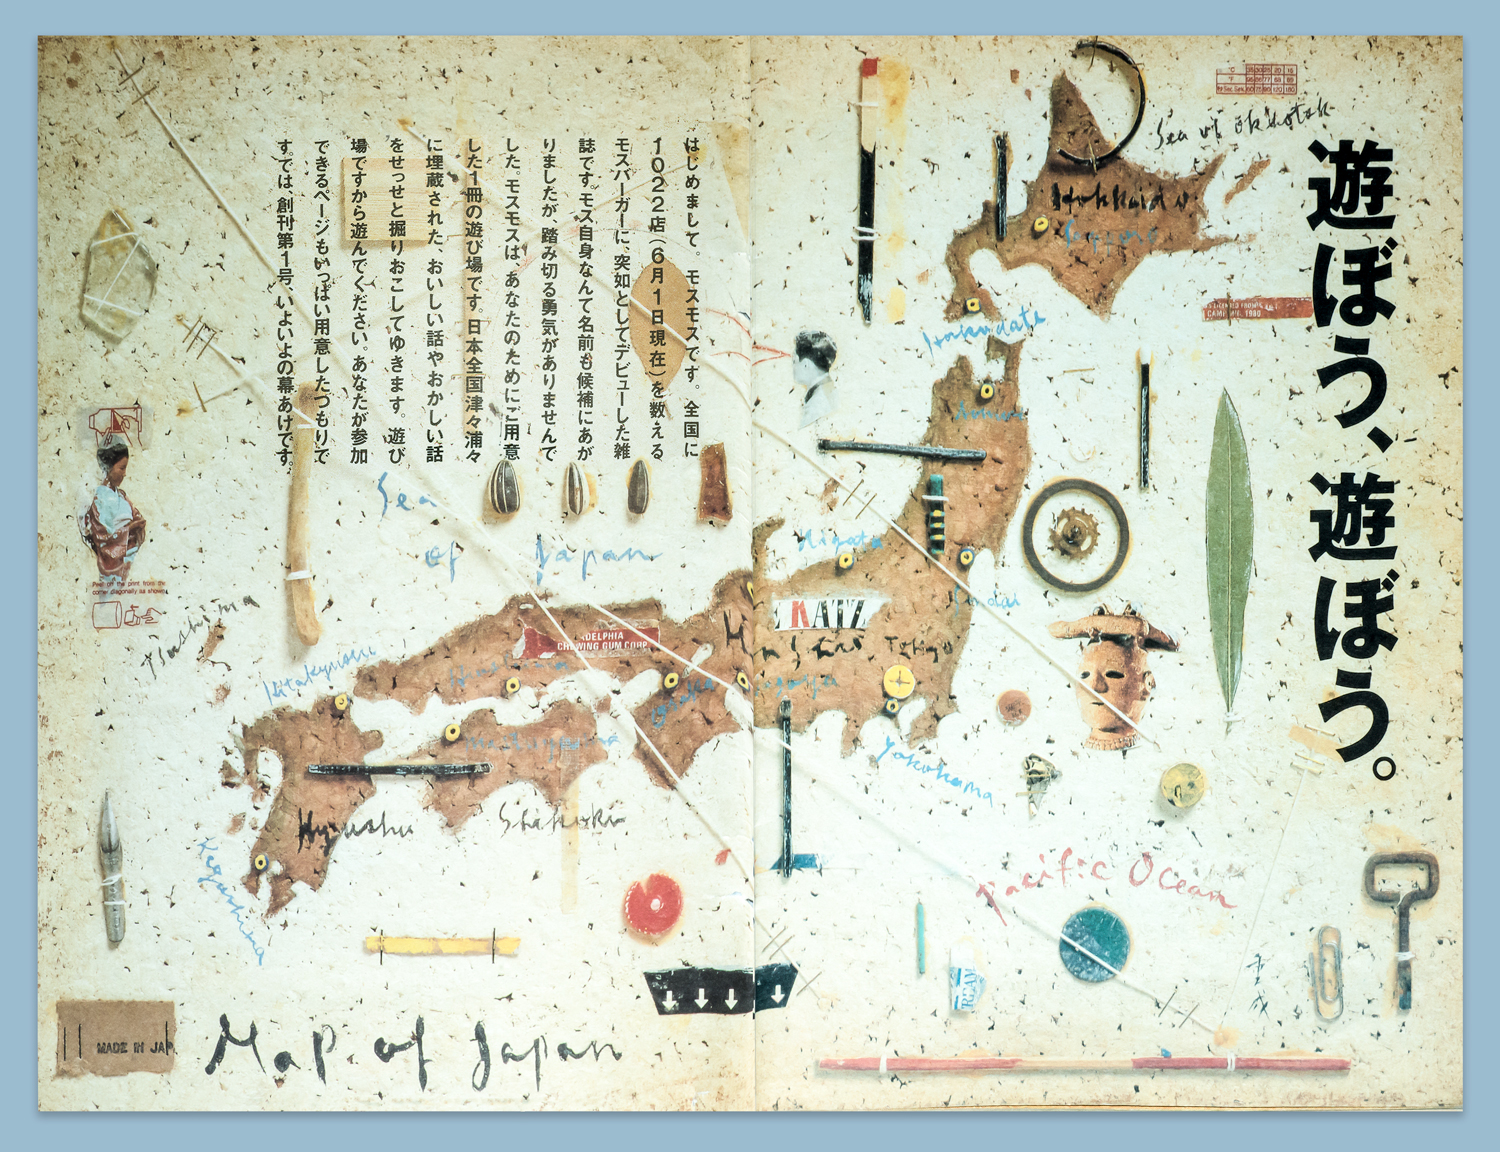 遊ぼう、遊ぼう。
はじめまして。モスモスです。全国に
1022店(6月1日現在)を数える
モスバーガーに、突如としてデビューした雑
誌です。モス自身なんて名前も候補にあが
りましたが、踏み切る勇気がありませんで
した。モスモスは、あなたのためにご用意
した1冊の遊び場です。日本全国津々浦々
に埋蔵された、おいしい話やおかしい話
をせっせと掘りおこしてゆきます。遊び
場ですから遊んでください。あなたが参加
できるページもいっぱい用意したつもりで
す。では、創刊第1号、いよいよの幕あけです。
Sea of Okhotsk
Hokkaido
Sapporo
Hakodate
Niigata
Sendai
KATZ
Honshu
Tokyo
Yokohama
Sea
of Japan
DELPHIA
CHEWING GUM CORP.
Tsushima
Kitakyushu
Hiroshima
Osaka
Nagoya
Matsuyama
Kyushu
Shikoku
Kagoshima
Pacific Ocean
Peel off the print from the
corner diagonally as shown.
REAM
MADE IN JAP
Map of Japan